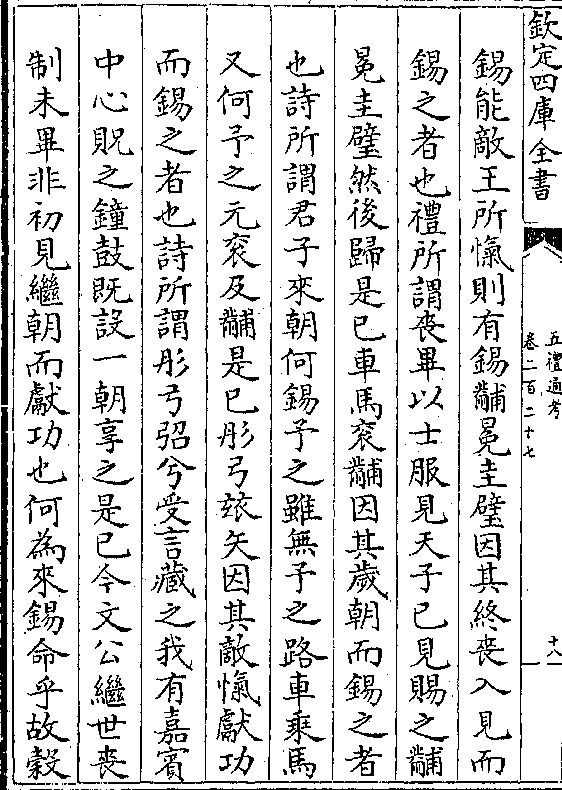 欽定四庫全書
五禮通考
卷二百二十七
十八
錫能敵王所愾則有錫黼冕圭璧因其終喪入見而
錫之者也禮所謂喪畢以士服見天子已見賜之黼
冕圭璧然後歸是已車馬衮黼因其歲朝而錫之者
也詩所謂君子來朝何錫予之雖無予之路車乘馬
又何予之元衮及黼是已彤弓玈矢因其敵愾獻功
而錫之者也詩所謂彤弓弨兮受言藏之我有嘉賓
中心貺之鐘鼓既設一朝享之是已今文公繼世喪
制未畢非初見繼朝而獻功也何為來錫命乎故穀